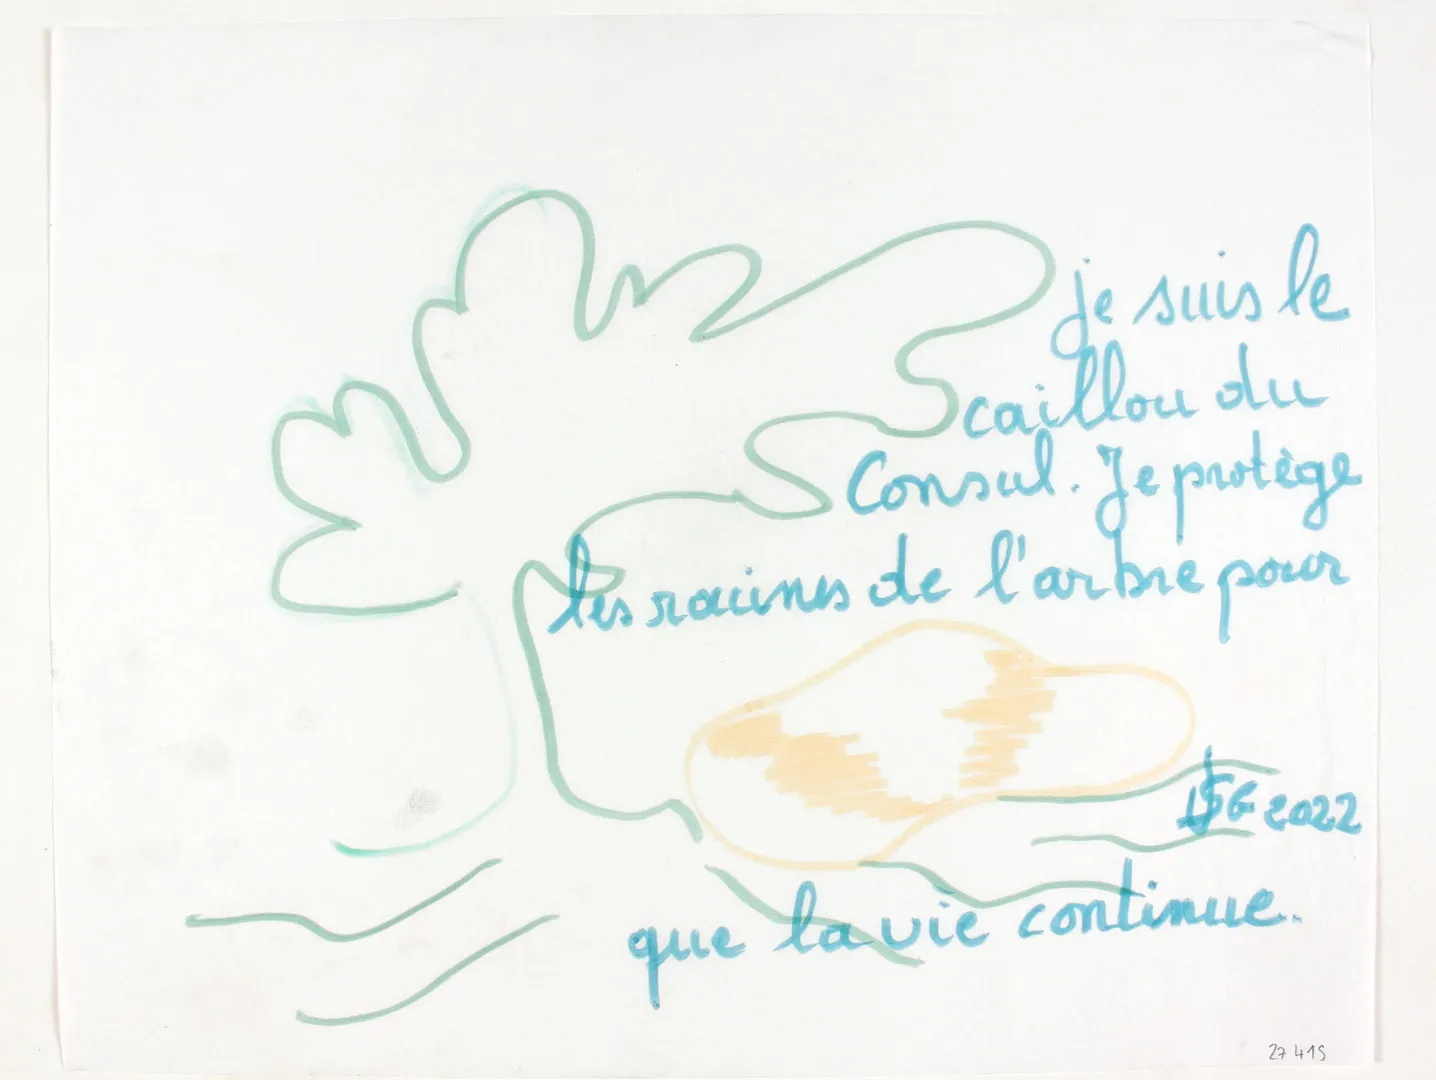 je suis le
caillou du
Consul. Je protège
les racines de l'arbre pour
que la vie continue.
2022
27 415